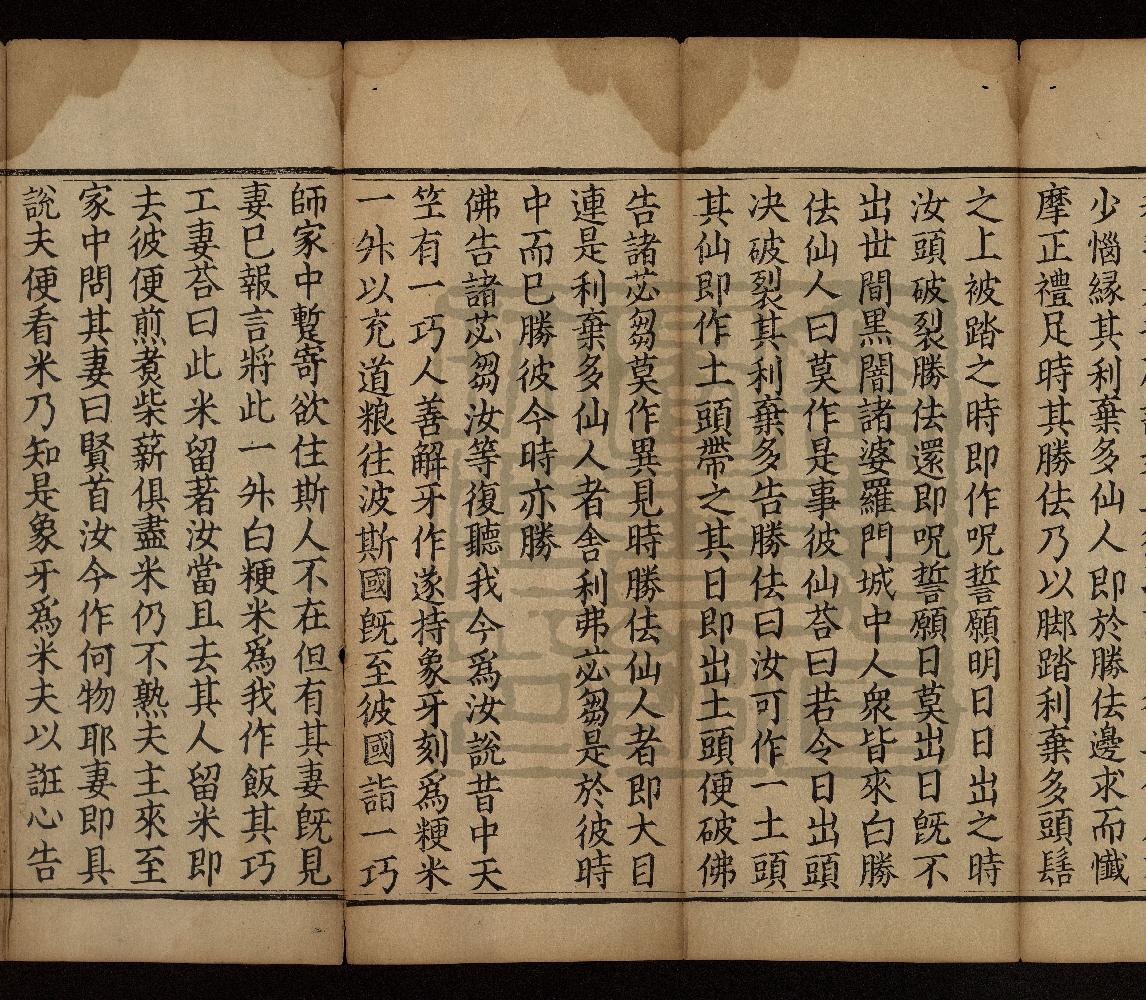 少惱縁其利棄多仙人即於勝佉邊求而懺
摩正禮足時其勝佉乃以脚踏利棄多頭髻
之上被踏之時即作呪誓願明日日出之時
汝頭破裂勝佉還即呪誓願日莫出日旣不
出世間黑闇諸婆羅門城中人衆皆來白勝
佉仙人曰莫作是事彼仙荅曰若令日出頭
決破裂其利棄多告勝佉曰汝可作一土頭
其仙即作土頭帶之其日即出土頭便破佛
告諸苾芻莫作異見時勝佉仙人者即大目
連是利棄多仙人者舎利弗苾芻是於彼時
中而巳勝彼今時亦勝
佛告諸苾芻汝等復聽我今爲汝說昔中天
笁有一巧人善解牙作遂持象牙刻爲粳米
一舛以充道粮往波斯國旣至彼國詣一巧
師家中蹔寄欲住斯人不在但有其妻旣見
妻巳報言將此一舛白粳米爲我作飯其巧
工妻荅曰此米留著汝當且去其人留米即
去彼便煎煑柴薪俱盡米仍不熟夫主來至
家中問其妻曰賢首汝今作何物耶妻即具
說夫便看米乃知是象牙爲米夫以誑心告